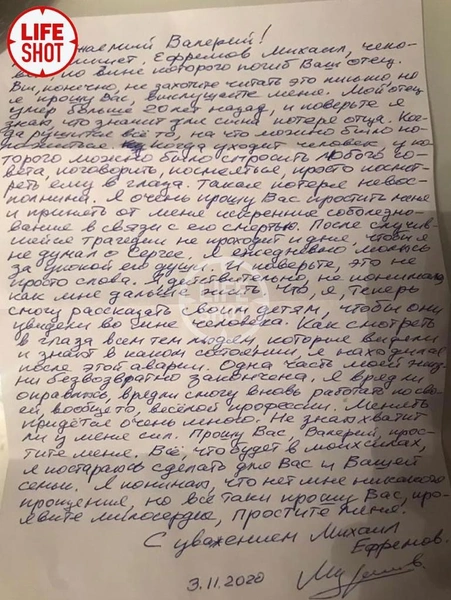 LIFE
SHOT
Валерий!
пишет Ефремов Михаил, чело-
век, по вине которого погиб Ваш отец.
Вы, конечно, не захотите читать это письмо, но
я прошу Вас, выслушайте меня. Мой отец
умер больше 20 лет назад, и поверьте я
знаю, что значит для сына потеря отца. Ког-
да рушится всё то, на что можно было по-
ложиться. когда уходит человек у ко-
торого можно было спросить любого со-
вета, поговорить, посмеяться, просто посмот-
реть ему в глаза. Такая потеря невос-
полнима. Я очень прошу Вас простить меня
и принять от меня искренние соболезно-
вание в связи с его смертью. После случив-
шейся трагедии не проходит и дня, чтобы я
не думал о Сергее, я ежедневно молюсь
за упокой его души. И поверьте, это не
просто слова. Я действительно, не понимаю
как мне дальше жить, что, я, теперь
смогу рассказать своим детям, чтобы они
увидели во мне человека. Как смотреть
в глаза всем тем людям, которые видели
и знают в каком состоянии, я находился
после этой аварии. Одна часть моей жиз-
ни безвозвратно закончена. Я вряд ли
оправлюсь, вряд ли смогу вновь работать по сво-
ей, вообще то, весёлой профессии. Менять
придётся очень много. Не знаю хватит
ли у меня сил. Прошу Вас, Валерий, прос-
тите меня. Всё, что будет в моих силах,
я постараюсь сделать для Вас и Вашей
семьи. Я понимаю, что нет мне никакого
прощения, но всё таки прошу Вас, про-
явите милосердие, простите меня.
С уважением Михаил
Ефремов.
3.11.2020
LIFE
SHOT